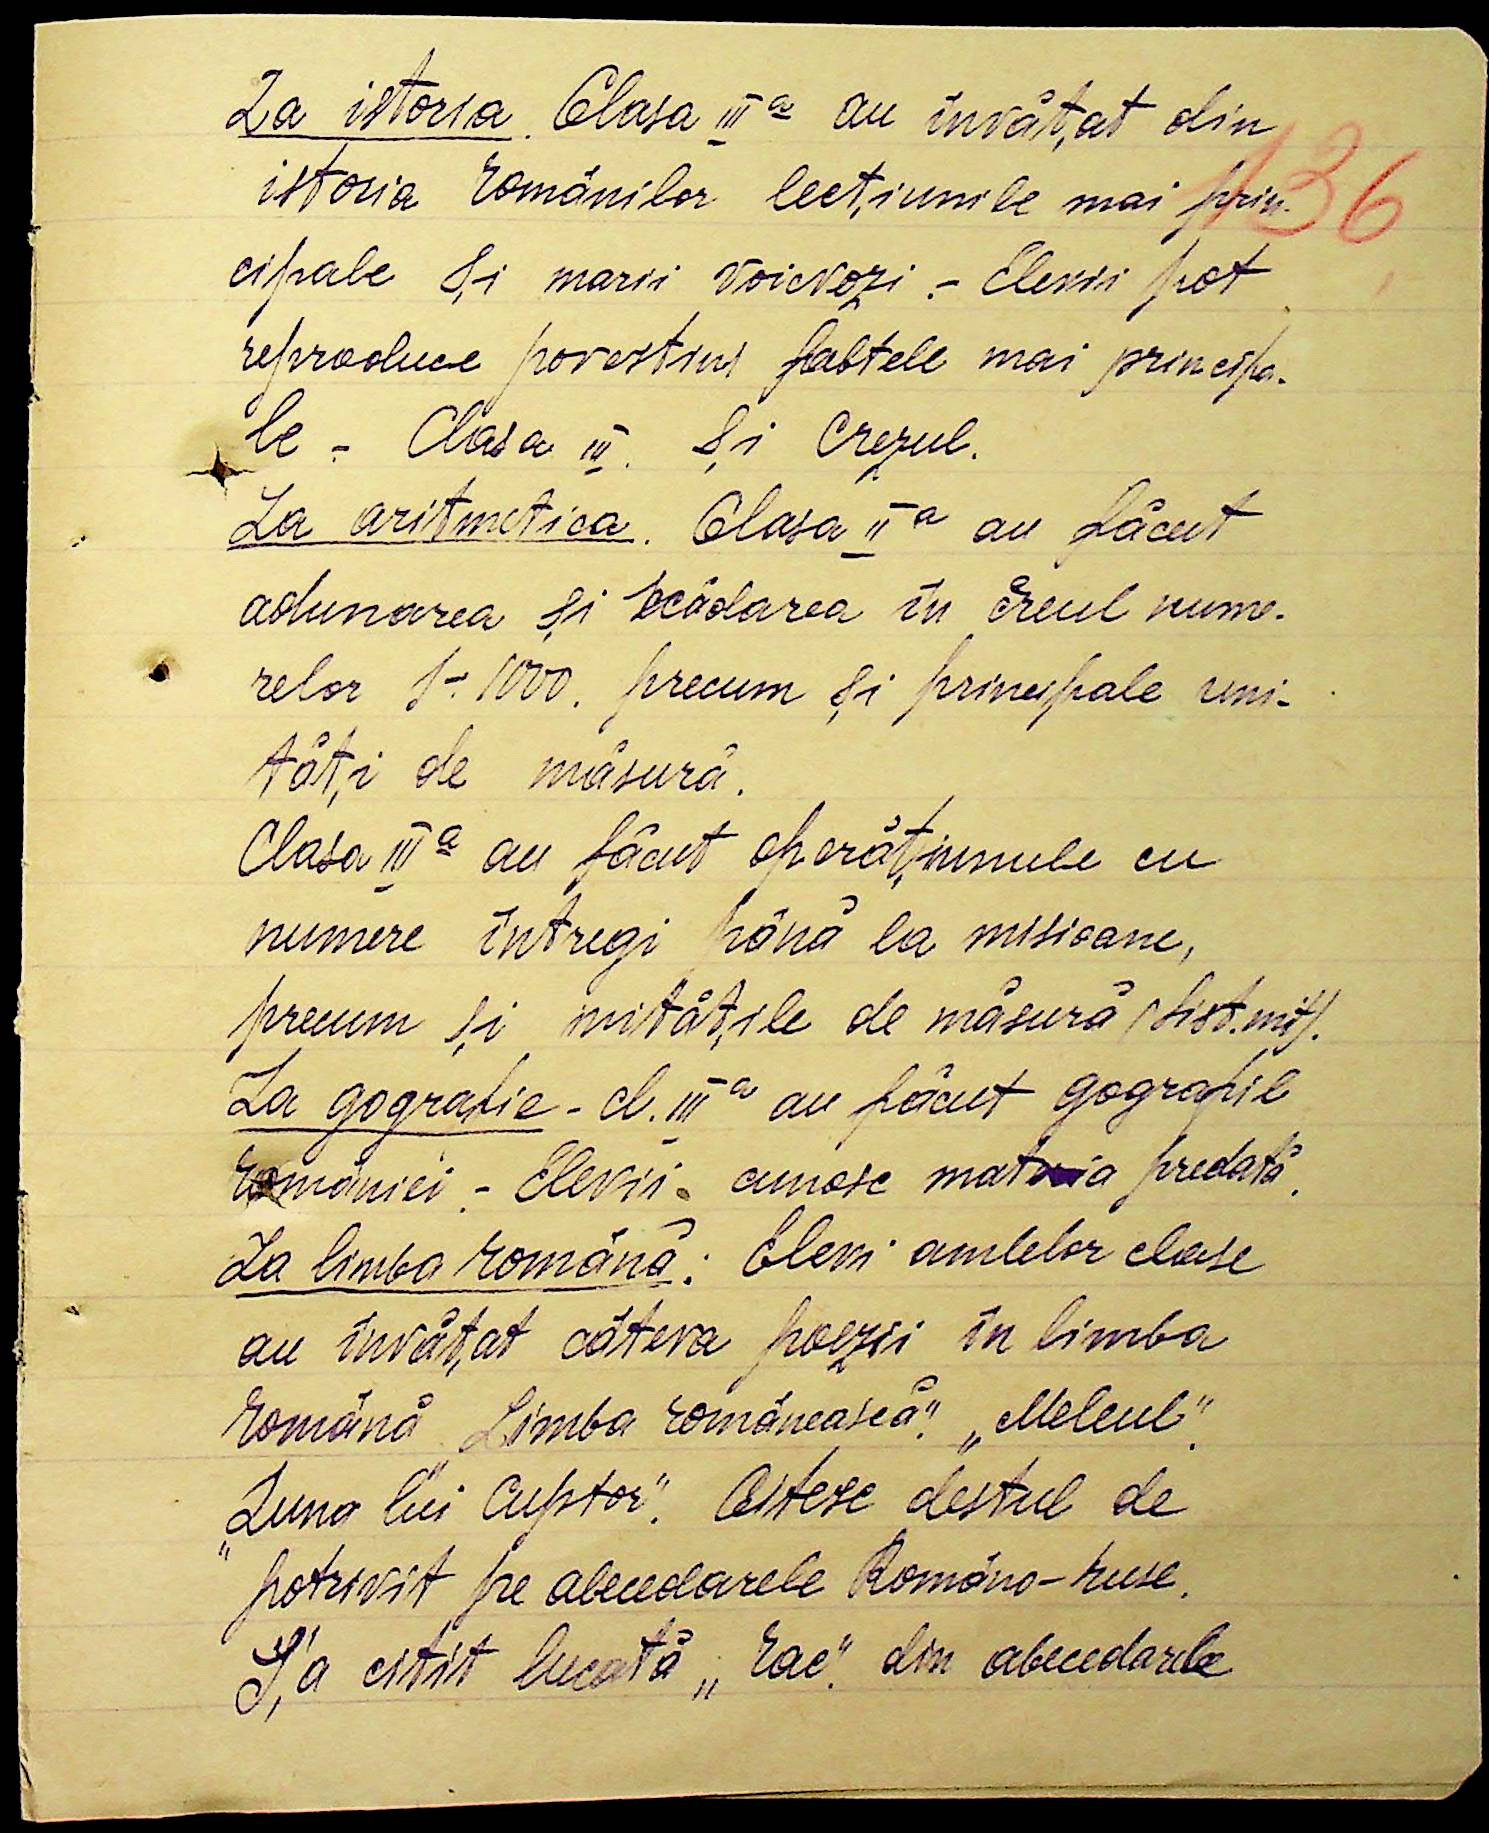 La istoria. Clasa IIIª au învățat din
136
istoria românilor lecțiunile mai prin-
cipale și marii voievozi. - Elevii pot
reproduce povestind faptele mai principa-
le - Clasa III. și Crezul.
La aritmetica. Clasa IIª au făcut
adunarea și scăderea în cercul nume-
relor 1-1000. precum și principale uni-
tăți de măsură.
Clasa IIIª au făcut operățiunule cu
numere întregi până la misioane,
precum și unitățile de măsură (sist. mt).
La gografie - cl. IIIª au făcut gografie
României. - Elevii cunosc materia predată.
La limba română: Elevi amlelor clase
au învățat câteva poezii în limba
română „Limba românească". „Meleul".
„Luna lui Cuptor". Citesc destul de
potrivit pe abecedarele Româno-ruse.
S'a citit bucată „Rac". din abecedarele